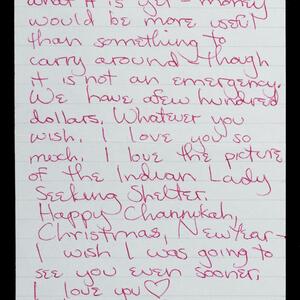 what it is yet - money
would be more useful
than something to
carry around though
it is not an emergency.
We have a few hundred
dollars. Whatever you
wish. I love you so
much. I love the picture
of the Indian Lady
Seeking Shelter.
Happy Channukah,
Christmas, New Year -
I wish I was going to
see you even sooner.
I love you ♡